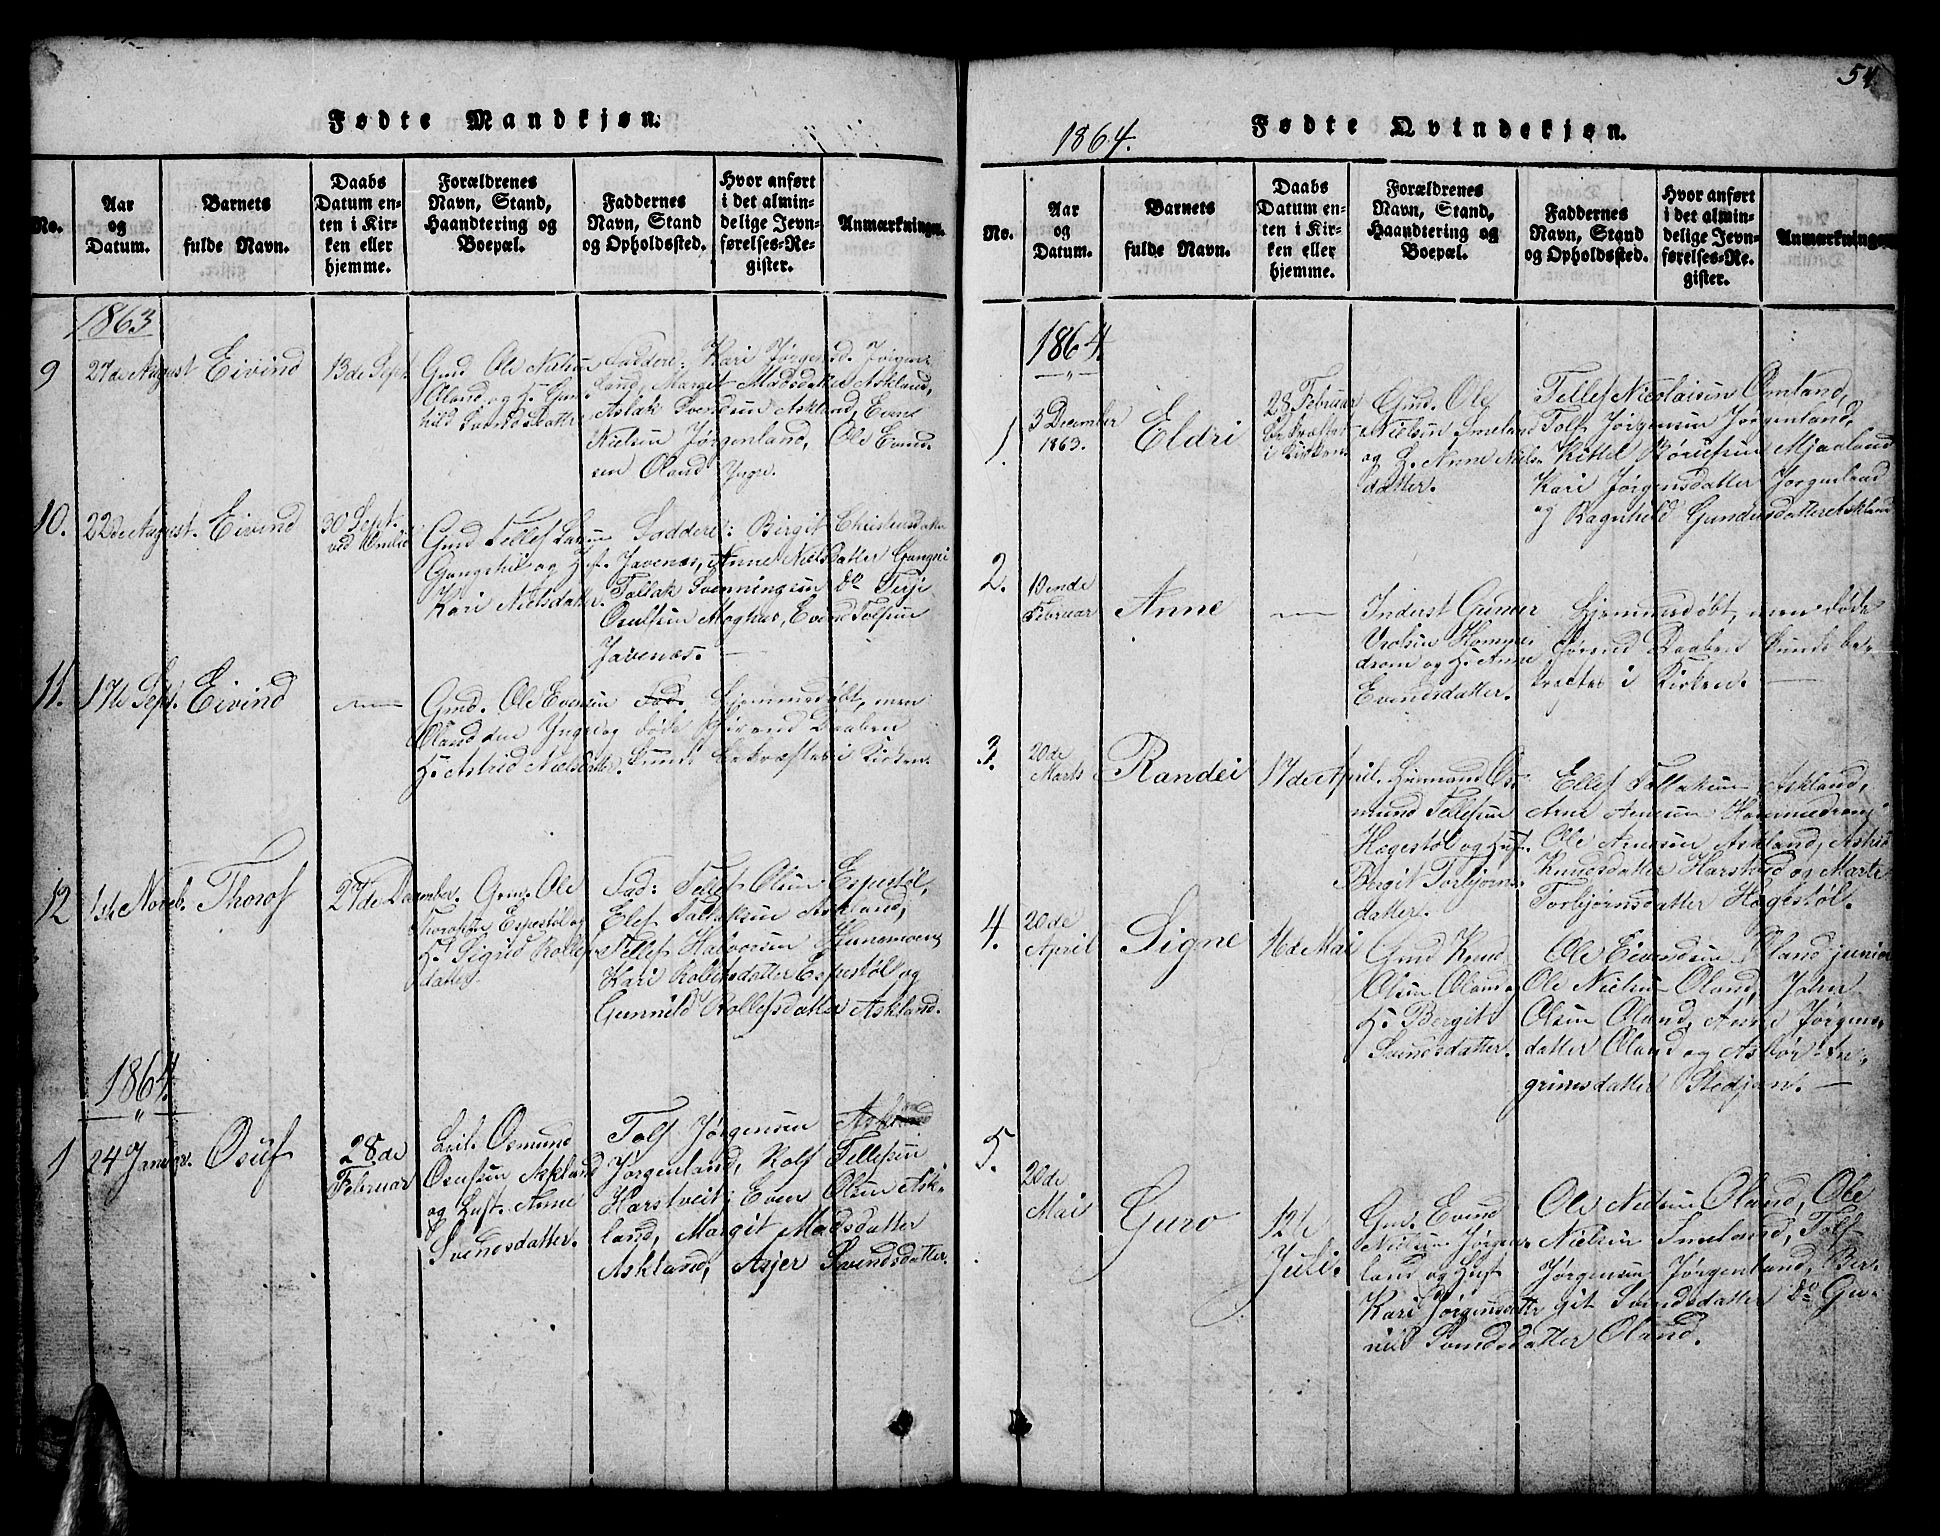 Fødte Mandkjøn.
No.
Aar
og
Datum.
Barnets
fulde Navn.
Daabs
Datum en-
ten i Kir-
ken eller
hjemme.
Forældrenes
Navn, Stand,
Haandtering og
Boepæl.
Faddernes
Navn, Stand
og Opholdssted.
Hvor anført
i det almin-
delige Jevn-
førelses-Re-
gister.
Anmærkninger
1863
9
27de August
Eivind
13de Sept.
Gmd Ole Nielsen
Øland og H. Gun
hild Svendsdatter
Faddere: Kari Jørgensd. Jørgen-
land, Margit Madsdatter Askland,
Aslak Svendsen Askland, Evend
Nielsen Jørgenland, Ole Evend-
sen Øland Yngre.
10.
22de August.
Eivind
30 Sept.
Gmd Tellef
og Hust.
Kari Nielsdatter.
Faddere: Birgit Christensdatter
Javenæs, Anne Nielsdatter
Tallak Svenningsen do Terje
Javenæs.
11.
17de Sept.
Eivind
Gmd. Ole Evensen
Øland den Yngre og
H. Astrid Nielsdatter.
Fad. Hjemmedøbt, men
døde førend Daaben
kunde bekræftes i Kirken.
12
1ste Noveb.
Thorof
27de December.
Gmd. Ole
Thorofsen Espestøl og
H. Sigrid Rollefs
datter
Fad: Tellef Olsen Espestøl,
Elef Tallaksen Askland,
Tellef Halvorsen
Kari Rollefsdatter Espestøl og
Gunnild Rollefsdatter Askland.
1864.
1
24 Januar.
Osuf
28de
Februar
Leil. Osmund
Osufsen Askland
og Hust. Anne
Svendsdatter.
Tolf Jørgensen
Jørgenland, Rolf Tellefsen
Harstveit, Even Olsen Ask-
land, Margit Madsdatter
Askland, Asjer Svendsdatter.
54
1864.
Fødte Qvindekjøn.
No.
Aar
og
Datum.
Barnets
fulde Navn.
Daabs
Datum en-
ten i Kir-
ken eller
hjemme.
Forældrenes
Navn, Stand,
Haandtering og
Boepæl.
Faddernes
Navn, Stand
og Opholdssted.
Hvor anført
i det almin-
delige Jevn-
førelses-Re-
gister.
Anmærkninger
1864
1.
3 December
1863.
Eldri
28 Februar
bekræftet
i Kirken
Gmd. Ole
Nielsen Smeland
og H. Anne Niels-
datter.
Tellef Nicolaisen Omland,
Tolf Jørgensen Jørgenland,
Kittel Mjaaland
Kari Jørgensdatter Jørgenland
og Ragnhild Gundersdatter Askland
2.
Februar
Anne
Inderst Gunner
Hommes
drom og H. Anne
Evensdatter.
Hjemmedøbt, men døde
førend Daaben kunde be-
kræftes i Kirken.
3.
20de
Marts
Randei
17de April.
Huusmand Os-
mund Tellefsen
Hagestøl og Hust.
Bergit Torbjørns-
datter.
Ellef Tallaksen Askland,
Arne Arnesen Hommedrom,
Ole Arnesen Askland, Astrid
Knudsdatter Harstved og Marte
Torbjørnsdatter Hagestøl.
4.
20de
April
Signe
16de Mai
Gmd Knud
Olsen Øland og
H. Bergit
Svendsdatter.
Ole Eivendsen Øland junior
Ole Nielsen Øland, John
Olsen Øland, Anne Jørgens-
datter Øland og
grimsdatter Stedjan.
5.
20de
Mai
Guro
12te
Juli.
Gmd. Evend
Nielsen Jørgen-
land og Hust
Kari Jørgensdatter
Ole Nielsen Øland, Ole
Nielsen Smeland, Tolf
Jørgensen Jørgenland, Ber-
git Svendsdatter do Gu-
nild Svendsdatter Øland.